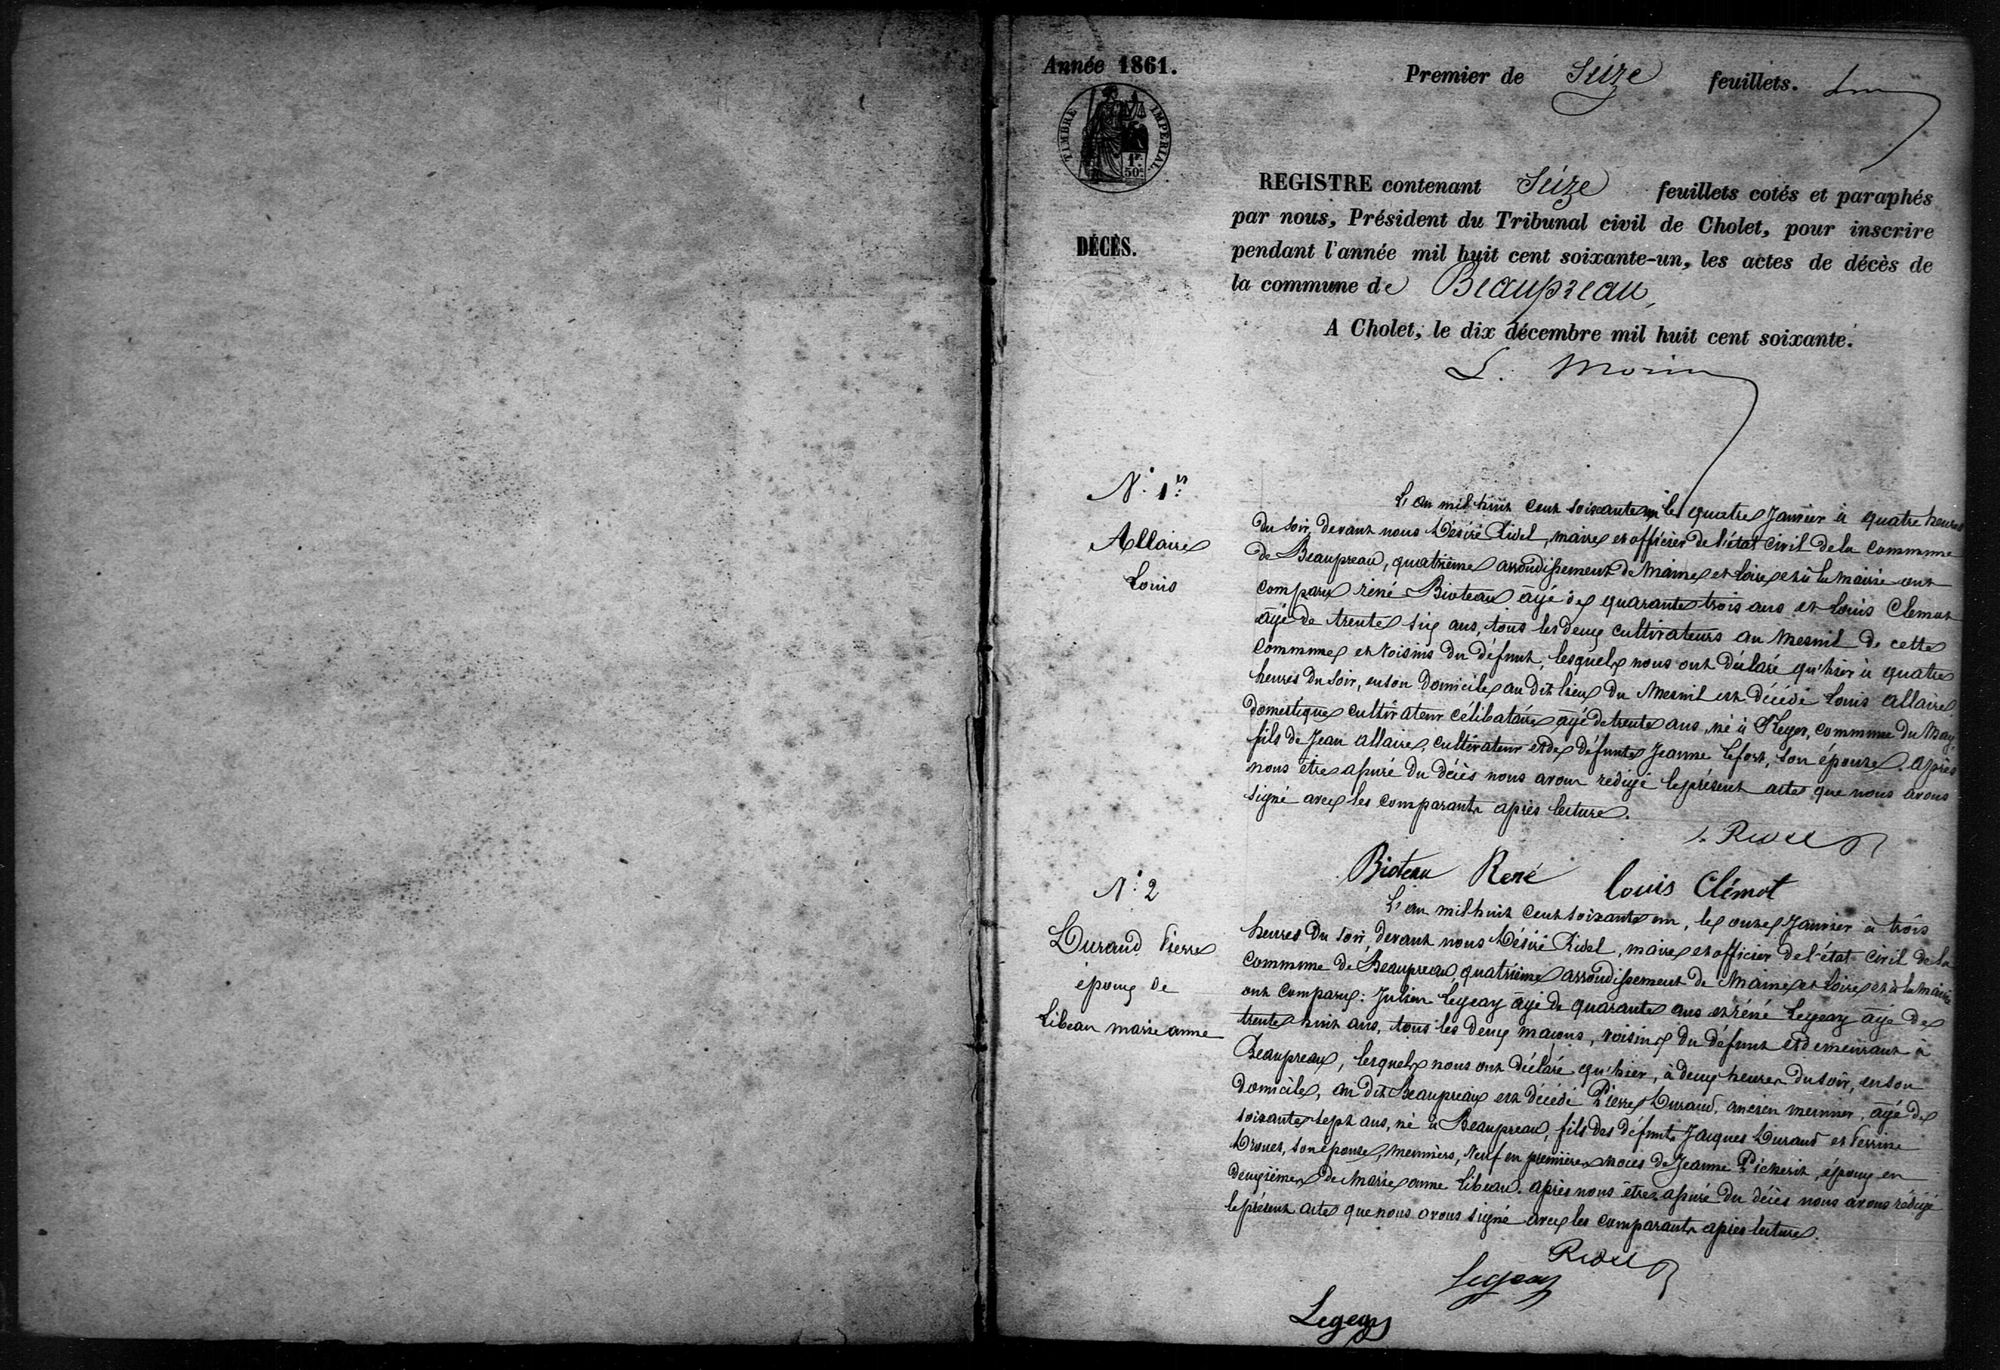 Année 1861.
Premier de Seize feuillets. Lm
TIMBRE IMPÉRIAL
1f.
50c.
DÉCÈS.
REGISTRE contenant Seize feuillets cotés et paraphés
par nous, Président du Tribunal civil de Cholet, pour inscrire
pendant l'année mil huit cent soixante-un, les actes de décès de
la commune de Beaupreau,
A Cholet, le dix décembre mil huit cent soixante.
L. Morin
N° 1er
Allaire
Louis
L'an mil huit cent soixante un le quatre Janvier à quatre heures
du soir, devant nous Désiré Ridel, maire et officier de l'état civil de la commune
de Beaupreau, quatrième arrondissement de Maine et Loire et à la mairie ont
comparu rené Bioteau âgé de quarante trois ans et Louis Clemot
âgé de trente six ans, tous les deux cultivateurs au Mesnil de cette
commune et voisins du défunt, lesquels nous ont déclaré qu'hier à quatre
heures du soir, en son domicile au dit lieu du Mesnil est décédé Louis allaire
domestique cultivateur célibataire âgé de trente ans, né à commune du May
fils de Jean allaire, cultivateur et de défunte Jeanne lefort, son épouse. après
nous être assuré du décès nous avons rédigé le présent acte que nous avons
signé avec les comparants après lecture.
Ridel
Bioteau René Louis Clémot
N° 2
Durand Pierre
époux de
Libeau marie anne
L'an mil huit cent soixante un, le onze Janvier à trois
heures du soir, devant nous Désiré Ridel, maire et officier de l'état civil de la
commune de Beaupreau quatrième arrondissement de Maine et Loire et à la mairie
ont comparu: Julien legeay âgé de quarante ans et réné Legeay âgé de
trente huit ans, tous les deux maçons, voisins du défunt et demeurant à
Beaupreau, lesquels nous ont déclaré qu'hier, à deux heures du soir, en son
domicile, au dit Beaupreau est décédé Pierre Durand, ancien meunier, âgé de
soixante sept ans, né à Beaupreau, fils des défunts Jacques Durand et Perrine
Drouet, son épouse, meuniers, veuf en premières noces de Jeanne Pickerit, époux en
deuxièmes de Marie anne libeau. après nous être assuré du décès nous avons rédigé
le présent acte que nous avons signé avec les comparants après lecture.
Ridel
legeay
Legeay